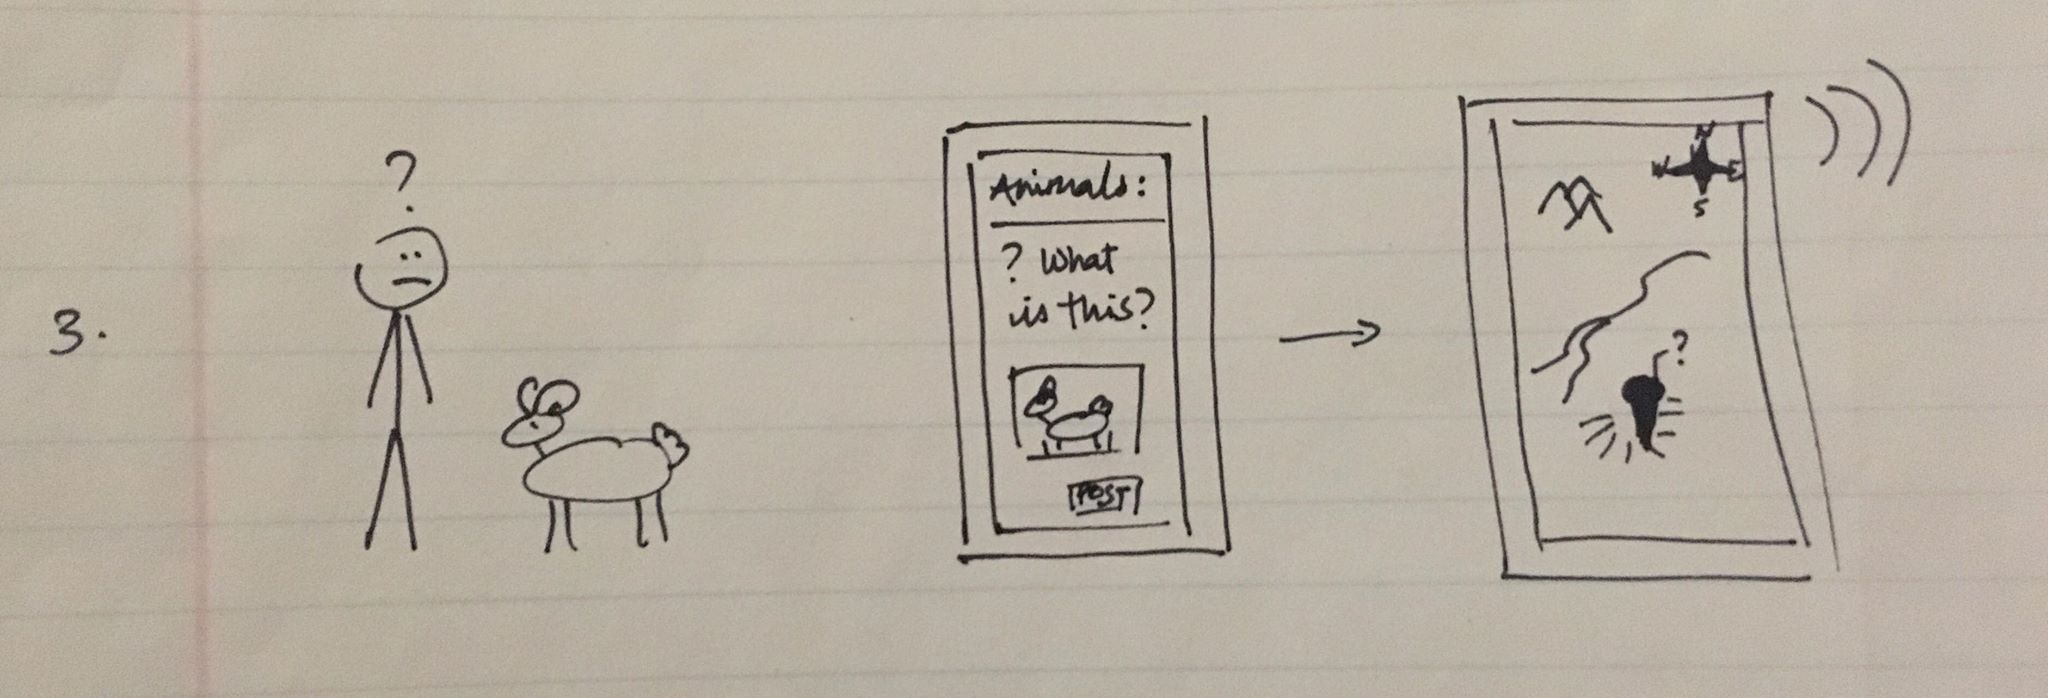 3.
?
Animals:
? What
is this?
POST
N
W E
S
?